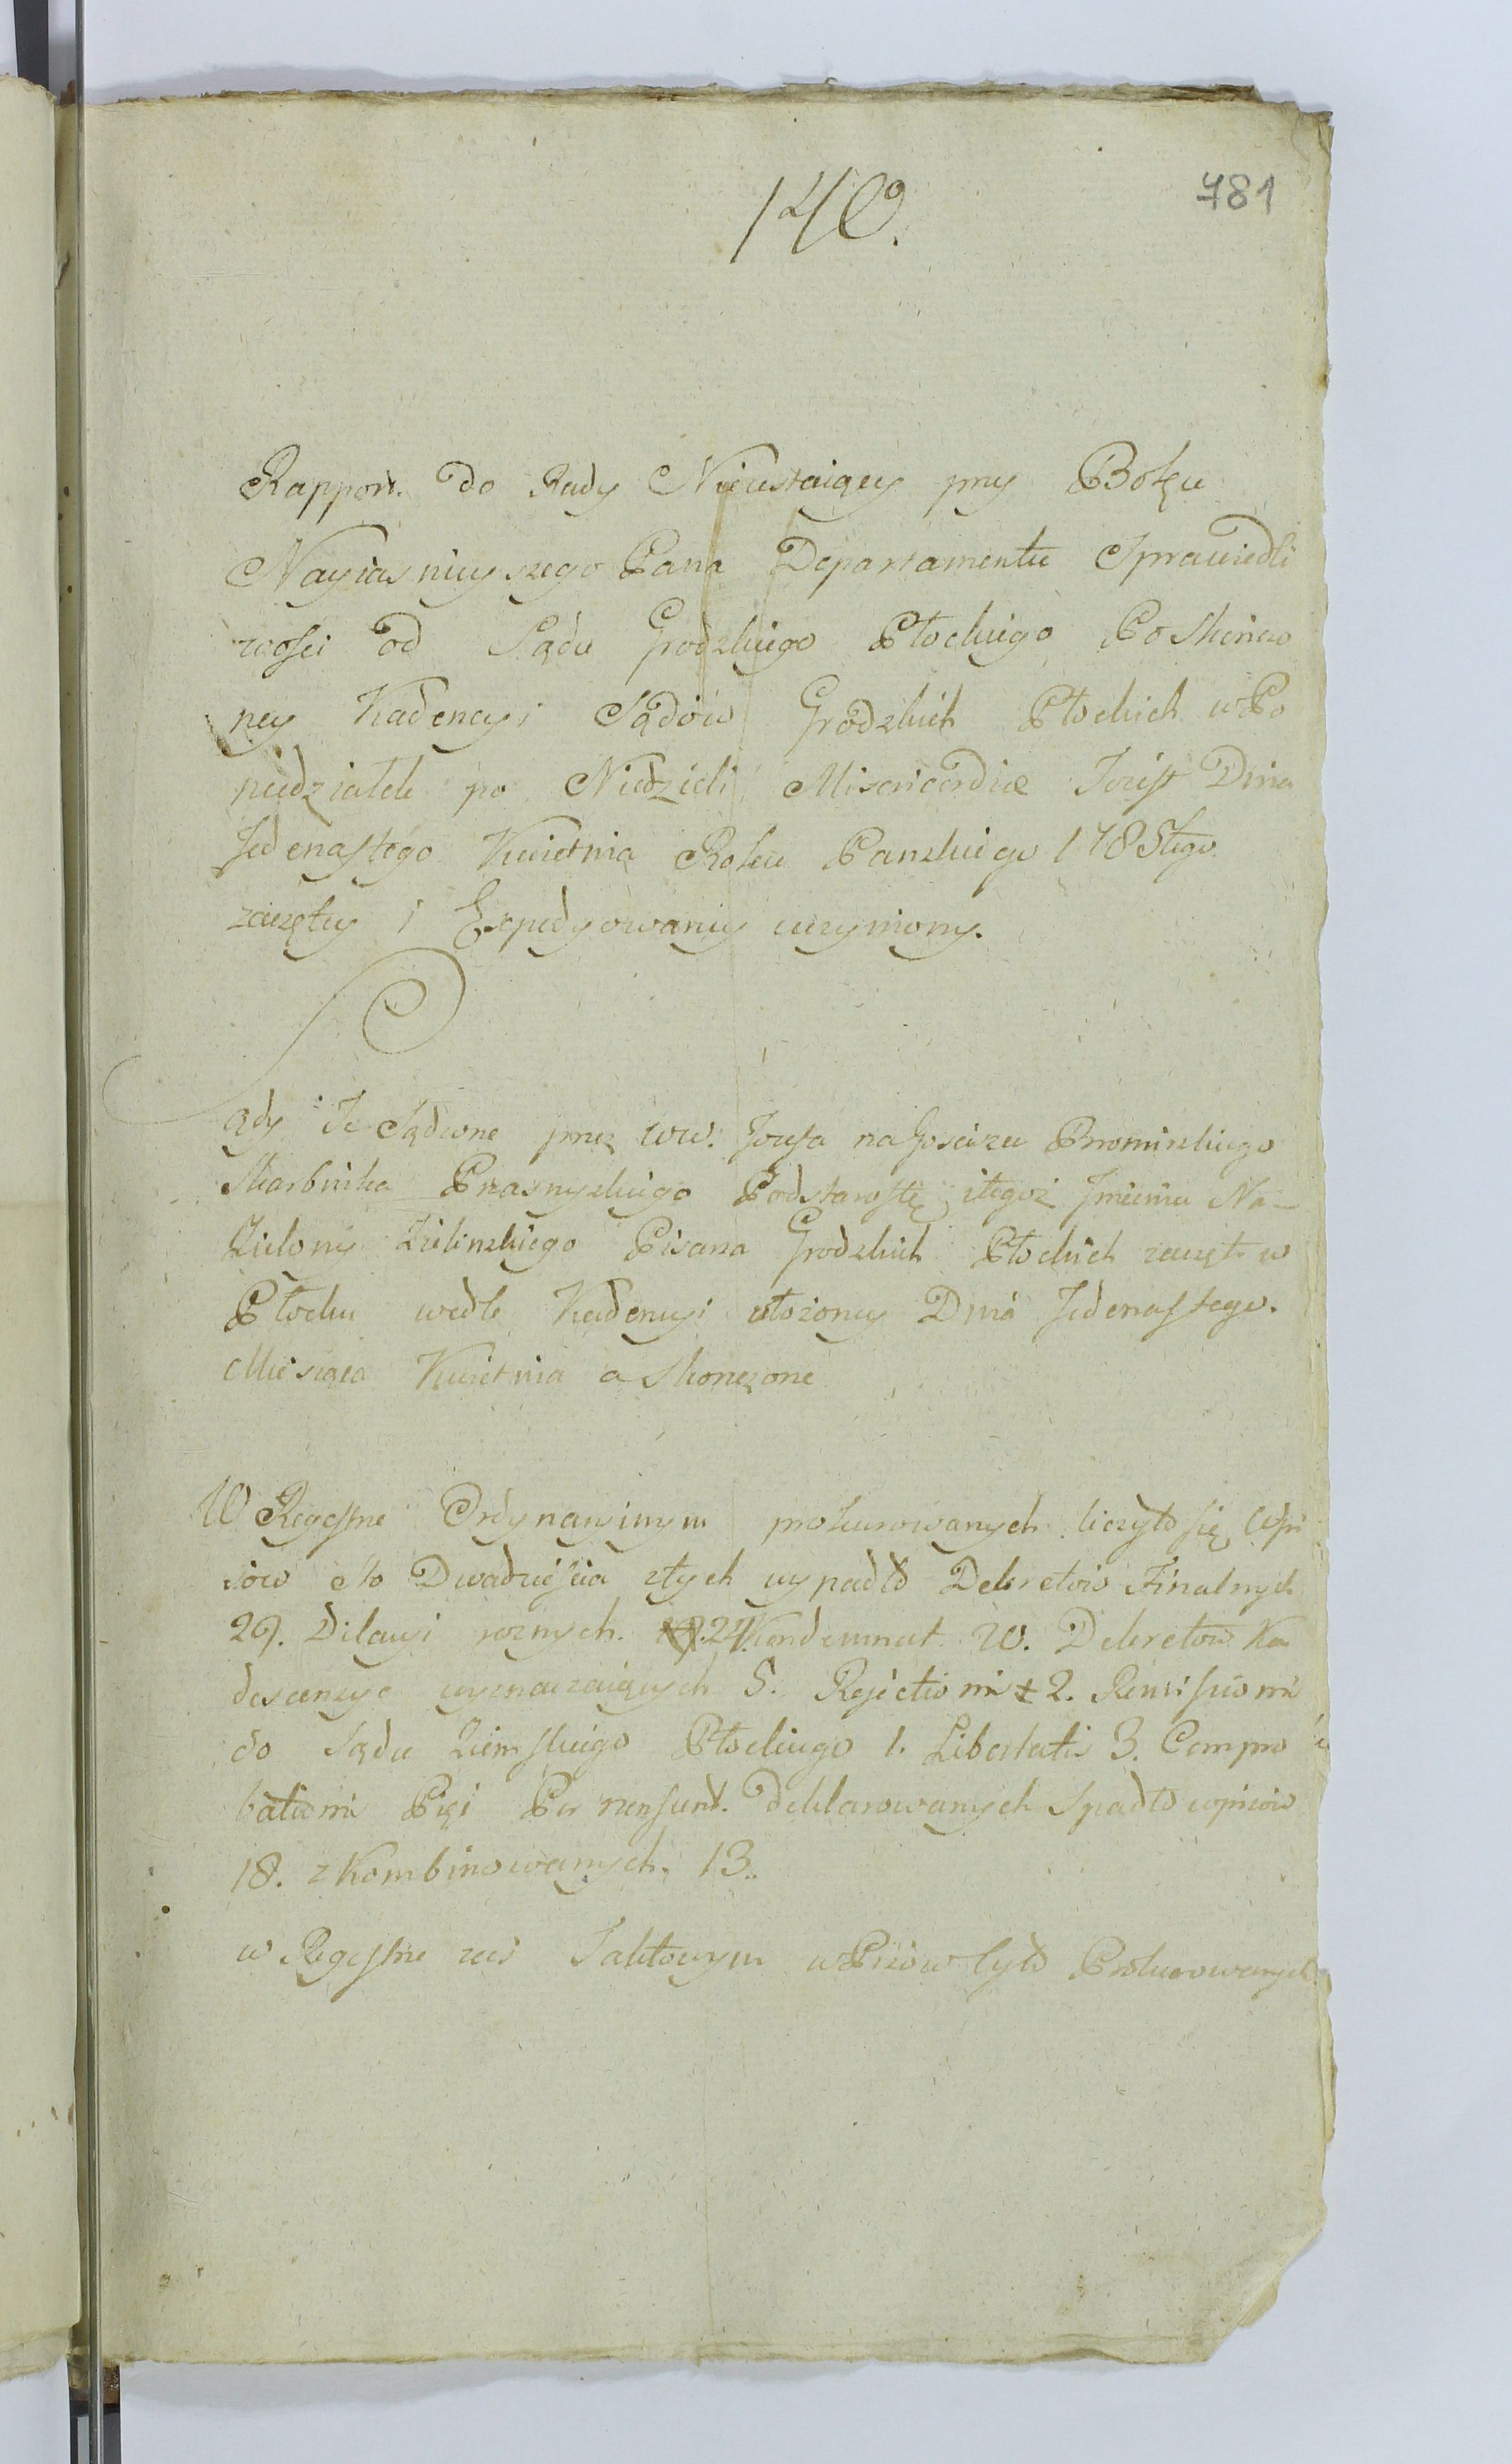 140.
781
Rapport. do Rady Nieustaiącey przy Boku
Nayiasnieyszego Pana Departamentu Sprawiedli
wosci od Sądu Grodzkiego Płockiego Po Skończo
ney Kadencyi Sądów Grodzkich Płockich w Po
niedziałek po Niedzieli Misericordiæ to iest Dnia
Jedenastego Kwietnia Roku Panskiego 1785tego
zaczętey i Expedyowaney uczyniony.
Sądy Te Sądzone przez WW. Jozefa na Gosciszu Bromirskiego
Skarbnika Przasnyskiego Podstarostę, i tegoż Jmienia Na-
Zielony Zielinskiego Pisarza Grodzkich Płockich zaczęte w
Płocku wedle Kadencyi ułożoney Dnia Jedenastego.
Miesiąca Kwietnia a Skonczone
W Regestrze Ordynaryinym prokurowanych liczyło się Wpi
sow Sto Dwadziescia z tych wypadło Dekretow Finalnych
29. Dilacyi roznych. 27. Kondemnat 20. Dekretow Kon
descensye wyznaczaiących 5. Rejectionis 2. Remissionis
do Sądu Ziemskiego Płockiego 1. Libertatis 3. Compro
bationis Pięć Per non sunt. Deklarowanych Spadło wpisow
18. zKombinowanych. 13.
w Regestrze zas Taktowym wPisow było Prokurowanych